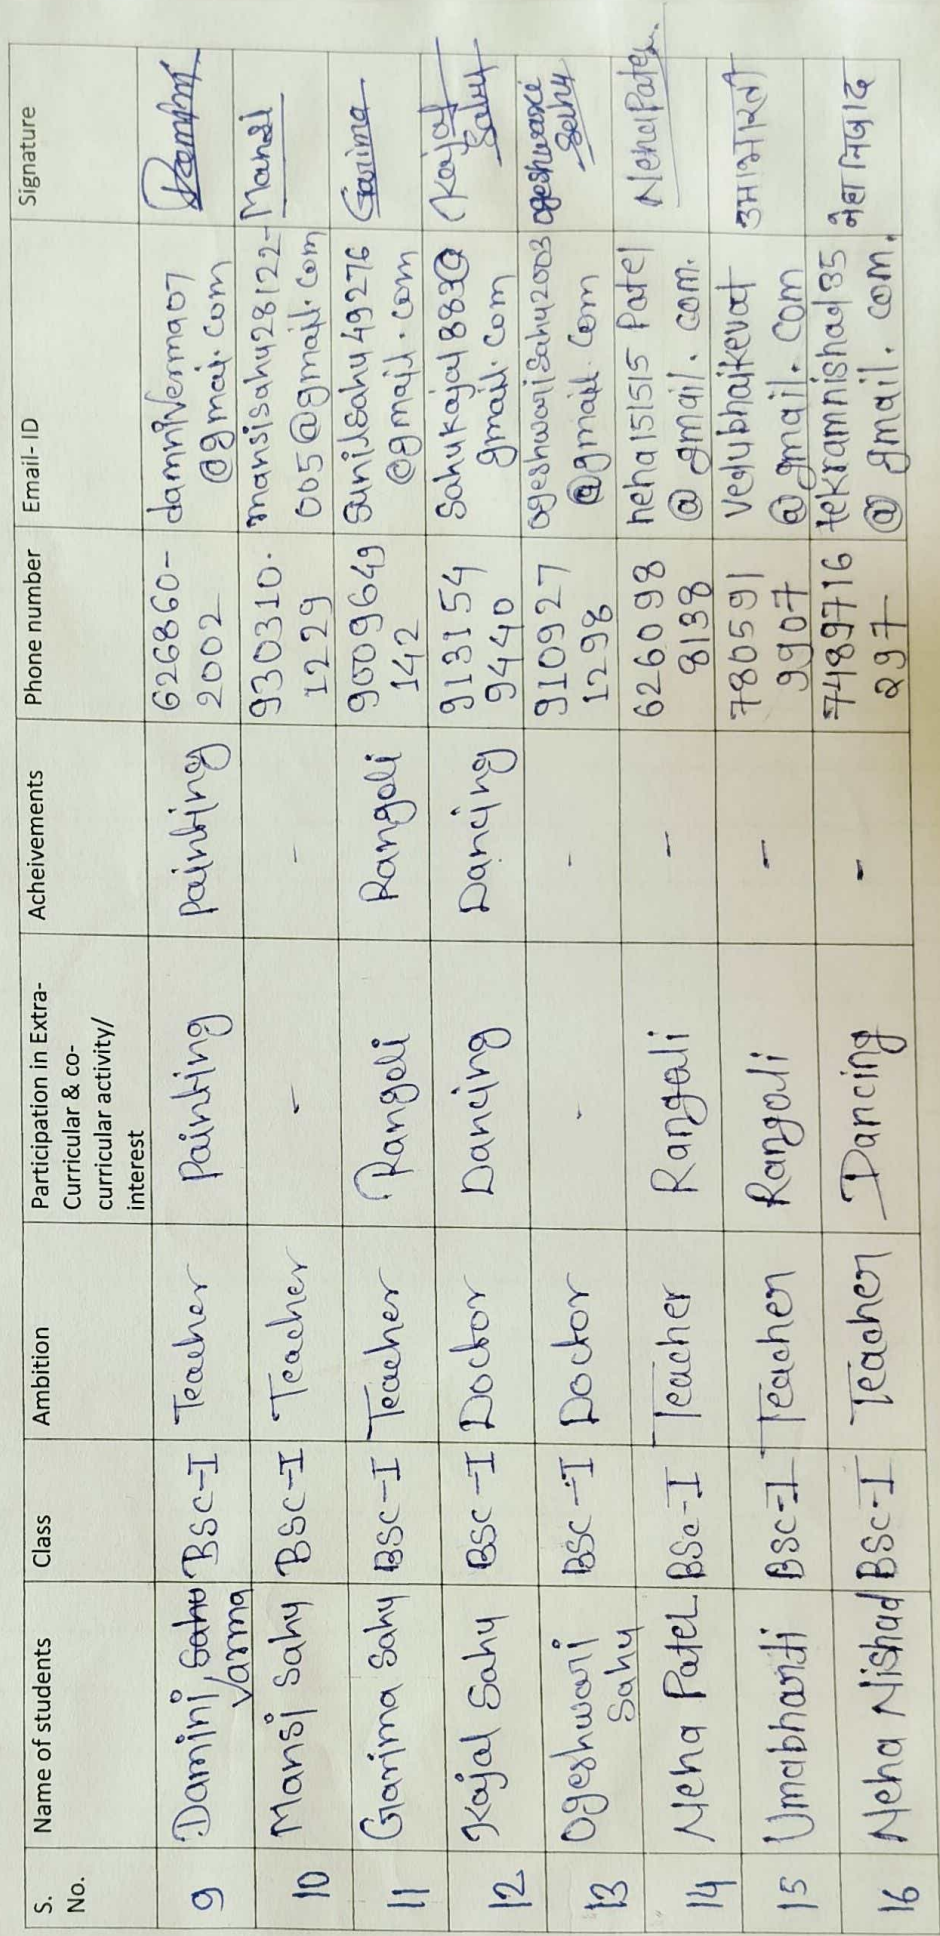 S. No. Name of students Class Ambition Participation in Extra-Curricular & co-curricular activity/ interest Acheivements Phone number Email-ID Signature
9 Damini Sahu Varma BSC-I Teacher Painting Painting 626860-2002 @gmail.com
10 Mansi Sahu BSC-I Teacher - - 930310.1229 mansisahu28122-005@gmail.com Mansi
11 Garima Sahu BSC-I Teacher Rangoli Rangoli 9009649142 Sunilsahu49276@gmail.com Garima
12 Kajal Sahu BSC-I Doctor Dancing Dancing 9131549440 gmail.com Kajal Sahu
13 Ogeshwari Sahu BSC-I Doctor - - 9109271298 ogeshwarisahu2003@gmail.com Sahu
14 Neha Patel BSc-I Teacher Rangoli - 6260988138 neha151515 Patel @gmail.com. Neha Patel
15 Umabharti BSC-I Teacher Rangoli - 7805919907 vedubhaikevat@gmail.com उमाभारती
16 Neha Nishad BSC-I Teacher Dancing - 7489716297 tekramnishad35@gmail.com. नेहा निषाद